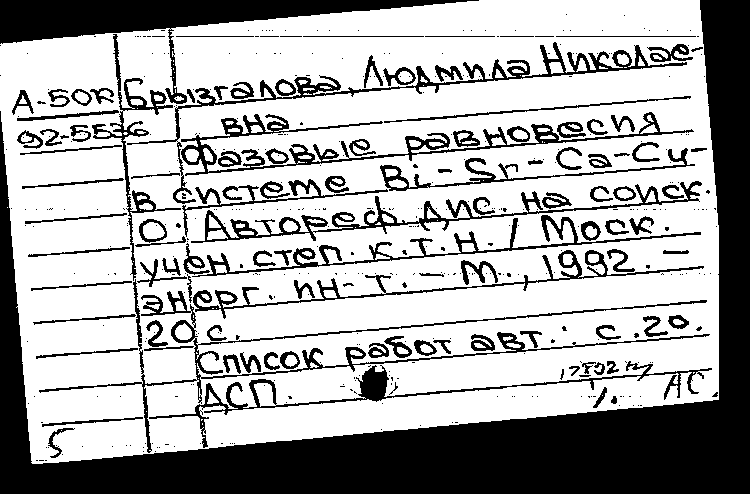 А-50к Брызгалова, Людмила Николае-
92-5536 вна.
Фазовые равновесия
в системе Bi-Sr-Ca-Cu-
O: Автореф. дис. на соиск.
учен. степ. к.т.н. / Моск.
энерг. ин-т. - М., 1992. -
20 с.
Список работ авт.: с.20.
ДСП.
АС.
5